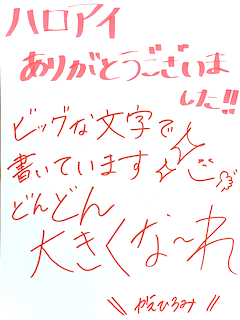 ハロアイ
ありがとうございま
した!!
ビッグな文字で
書いています
どんどん
大きくな〜れ